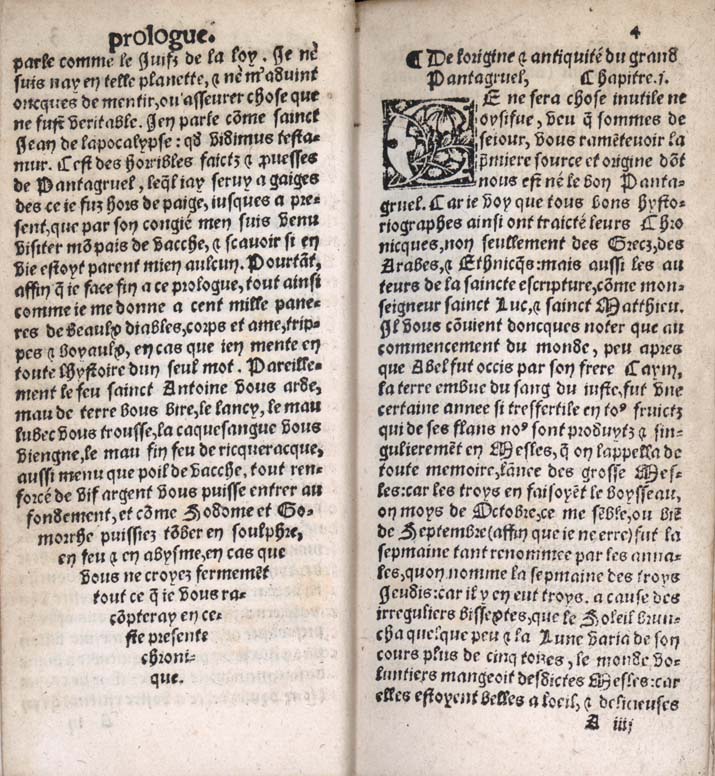 prologue.
parle comme le Juifz de la loy. Je nē
suis nay en telle planette, ⁊ nē m'aduint
oncques de mentir, ou asseurer chose que
ne fust veritable. Jen parle cōme sainct
Jean de lapocalypse: qd vidimus testa-
mur. Cest des horribles faictz ⁊ ꝓuesses
de Pantagruel, leq̄l iay seruy a gaiges
des ce ie fuz hors de paige, iusques a pre-
sent, que par son congié men suis venu
visiter mō pais de vacche, ⁊ scauoir si en
vie estoyt parent mien aulcun. Pourtāt,
affin q̄ ie face fin a ce prologue, tout ainsi
comme ie me donne a cent mille pane-
res de beaulx diables, corps et ame, trip-
pes ⁊ boyaulx, en cas que ien mente en
toute lhystoire dun seul mot. Pareille-
ment le feu sainct Antoine vous arde,
mau de terre vous vire, le lancy, le mau
lubec vous trousse, la caquesangue vous
viengne, le mau fin feu de ricqueracque,
aussi menu que poil de vacche, tout ren-
forcé de vif argent vous puisse entrer au
fondement, et cōme Sodome et Go-
morrhe puissiez tōber en soulphre,
en feu ⁊ en abysme, en cas que
vous ne croyez fermemēt
tout ce q̄ ie vous ra-
cōpteray en ce-
ste presente
chroni-
que.
4
¶ De lorigine ⁊ antiquité du grand
Pantagruel, Chapitre.j.
CE ne sera chose inutile ne
oysifue, veu q̄ sommes de
seiour, vous ramēteuoir la
p̄miere source et origine dōt
nous est né le bon Panta-
gruel. Car ie voy que tous bons hysto-
riographes ainsi ont traicté leurs Chro
nicques, non seullement des Grecz, des
Arabes, ⁊ Ethnicq̄s: mais aussi les au
teurs de la saincte escripture, cōme mon-
seigneur sainct Luc, ⁊ sainct Matthieu.
Il vous cōuient doncques noter que au
commencement du monde, peu apres
que Abel fut occis par son frere Cayn,
la terre embue du sang du iuste, fut vne
certaine annee si tresfertile en toꝰ fruictz
qui de ses flans noꝰ sont produytz ⁊ sin-
gulieremēt en Mesles, q̄ on lappella de
toute memoire, lānee des grosse Mes-
les: car les troys en faisoyēt le boysseau,
on moys de Octobre, ce me sēble, ou biē
de Septembre (affin que ie ne erre) fut la
sepmaine tant renommee par les anna-
les, quon nomme la sepmaine des troys
Jeudis: car il y en eut troys, a cause des
irreguliers bissextes, que le Soleil brun-
cha quelque peu ⁊ la Lune varia de son
cours plus de cinq toizes, le monde vo-
luntiers mangeoit desdictes Mesles: car
elles estoyent belles a loeil, ⁊ delicieuses
A iiij